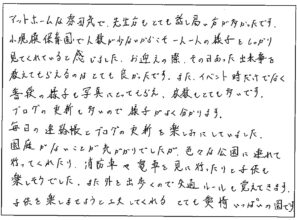 アットホームな雰囲気で、先生方もとても話し易い方が多かったです。
小規模保育園で人数が少ないからこそ一人一人の様子をしっかり
見てくれていると感じました。お迎えの際、その日あった出来事を
教えてもらえるのはとても良かったです。また、イベント時だけでなく
普段の様子も写真にとってもらえ、枚数もとても多いです。
ブログの更新も多いので様子がよく分かります。
毎日の連絡帳とブログの更新を楽しみにしていました。
園庭がないことが気がかりでしたが、色々な公園に連れて
行ってくれたり、消防車や電車を見に行ったりと子供も
楽しそうでした。また外を出歩くので交通ルールも覚えてきます。
子供を楽しませようと工夫してくれる とても愛情いっぱいの園です